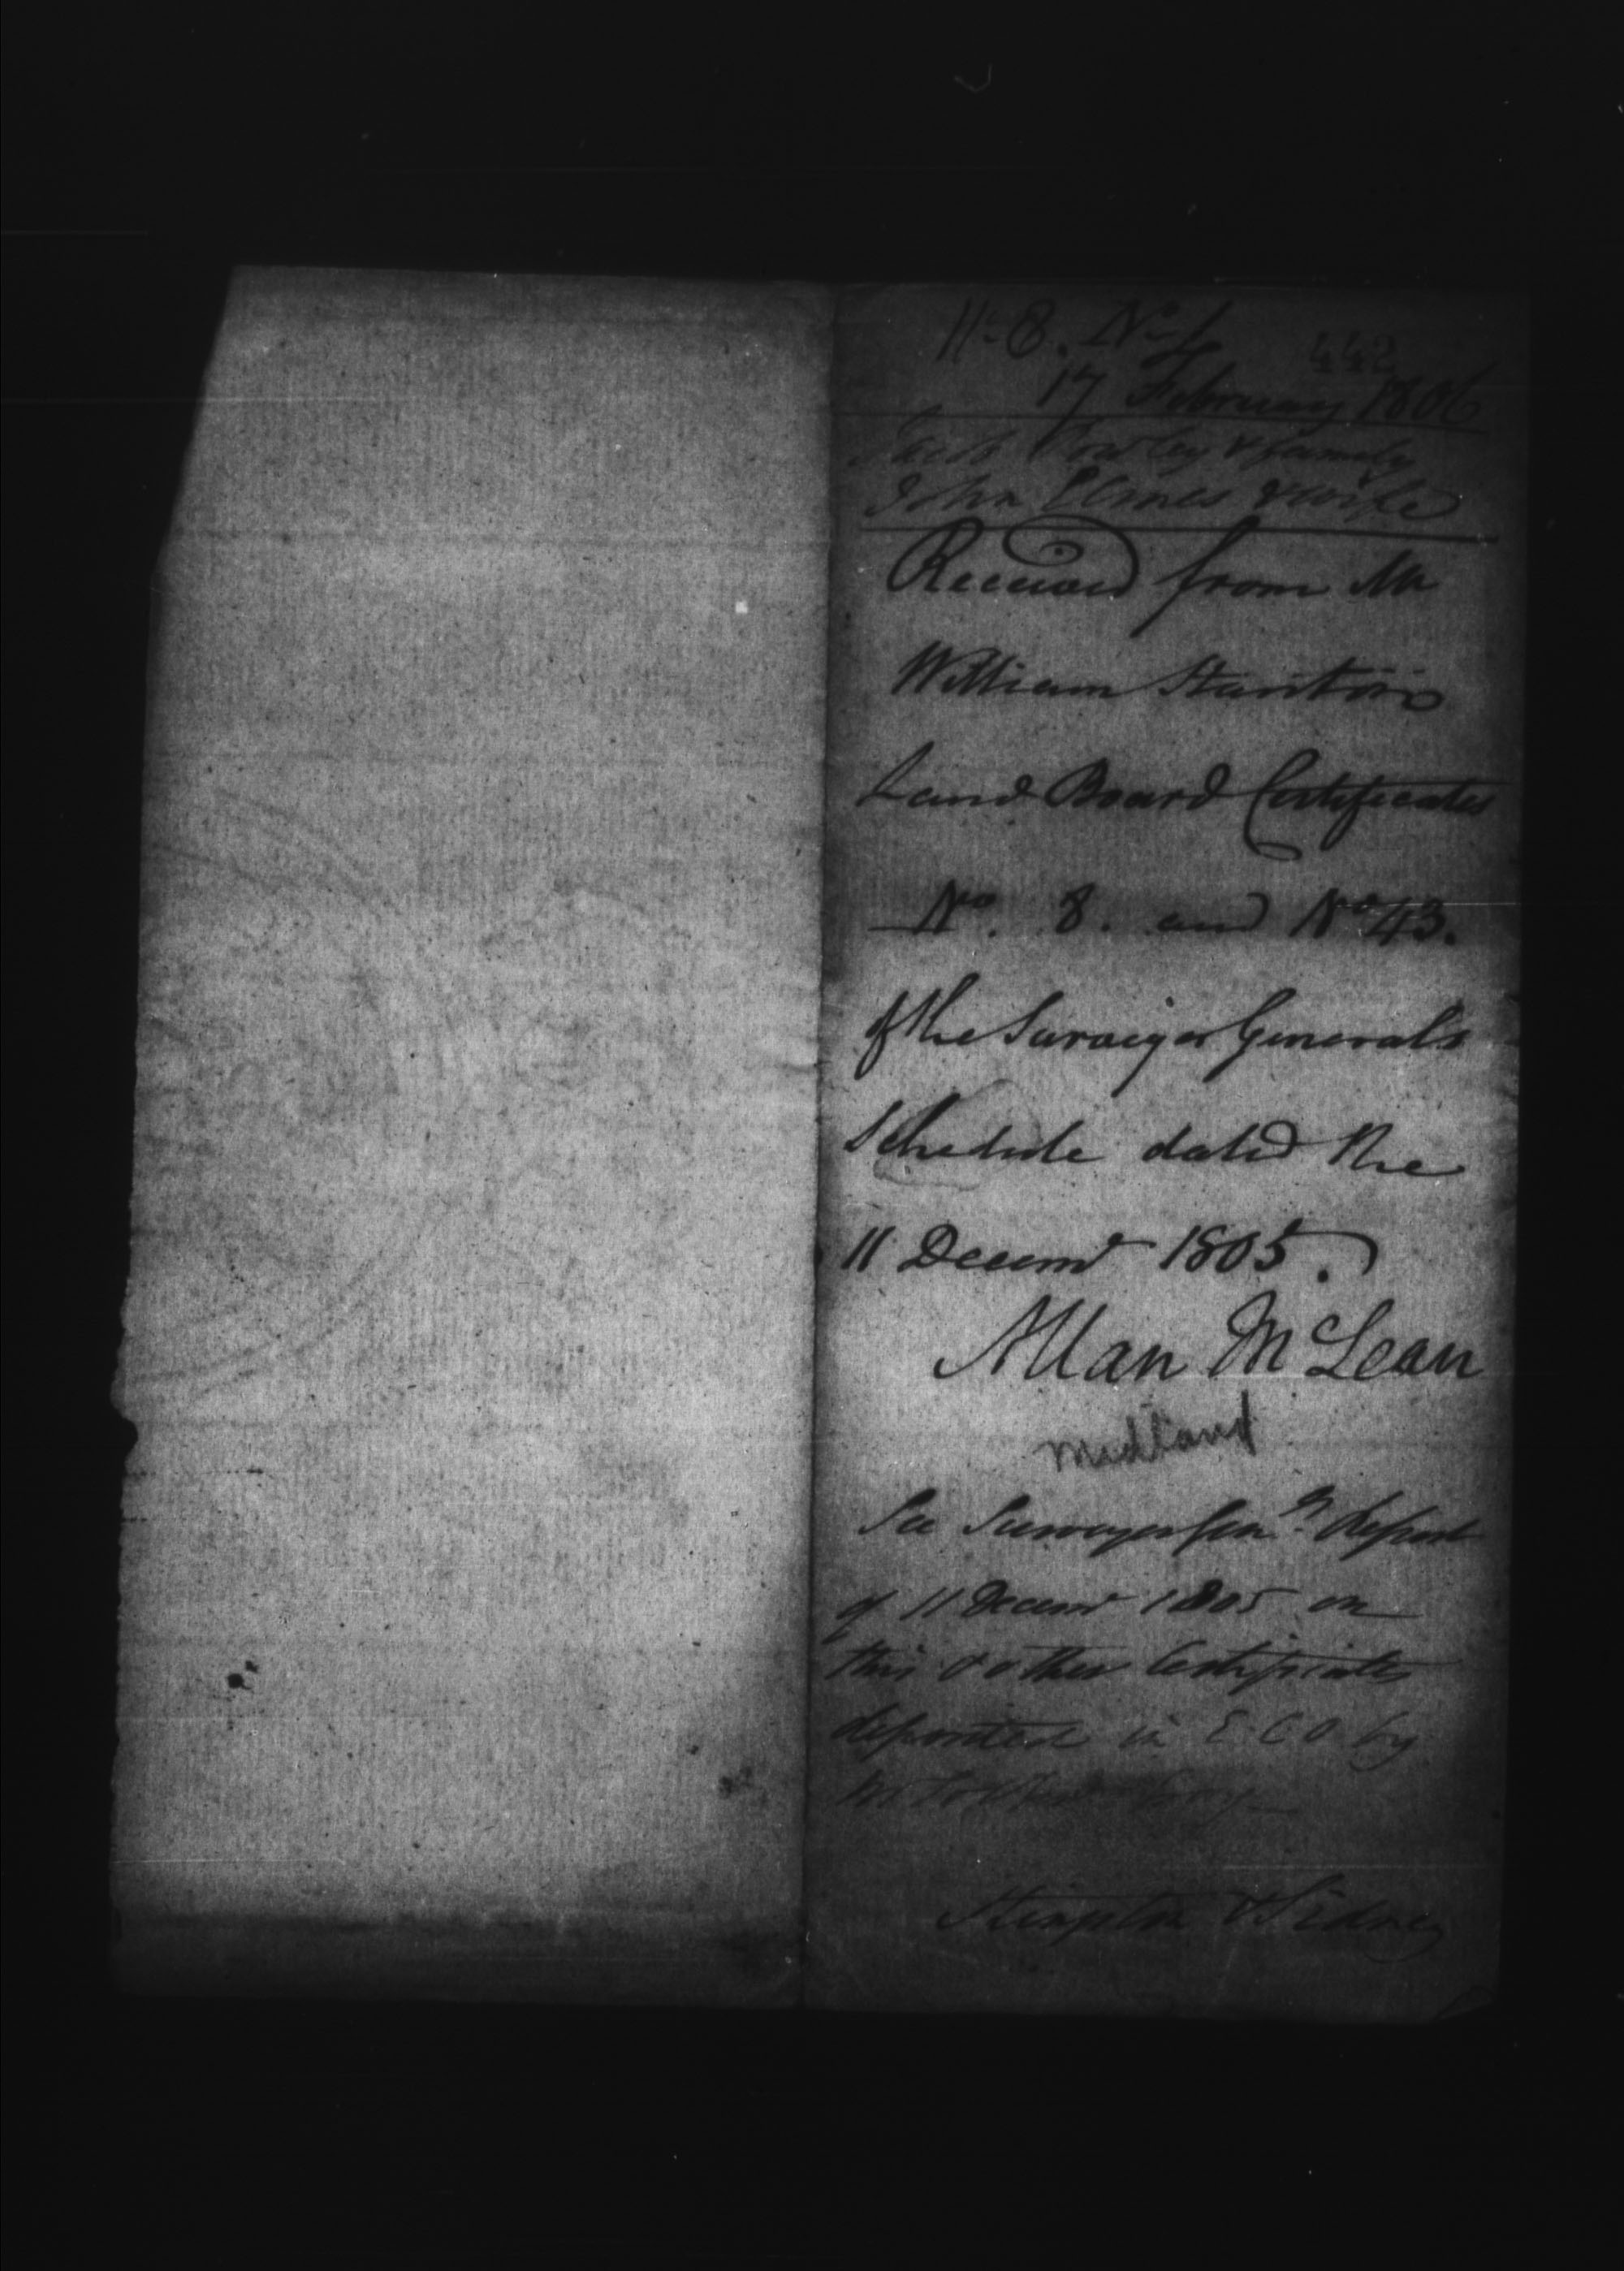 11-8. No 1
442
17 February 1806
& family
John Elmes & wife
Received from Mr
William Stanton
Land Board Certificates
No. 8. and No 43.
of the Surveyor Generals
Schedule dated the
11 Decemr 1805.
Allan McLean
Midland
See Surveyor Genls Report
of 11 Decemr 1805 on
this & other Certificates
deposited in E C O by
& Sidney